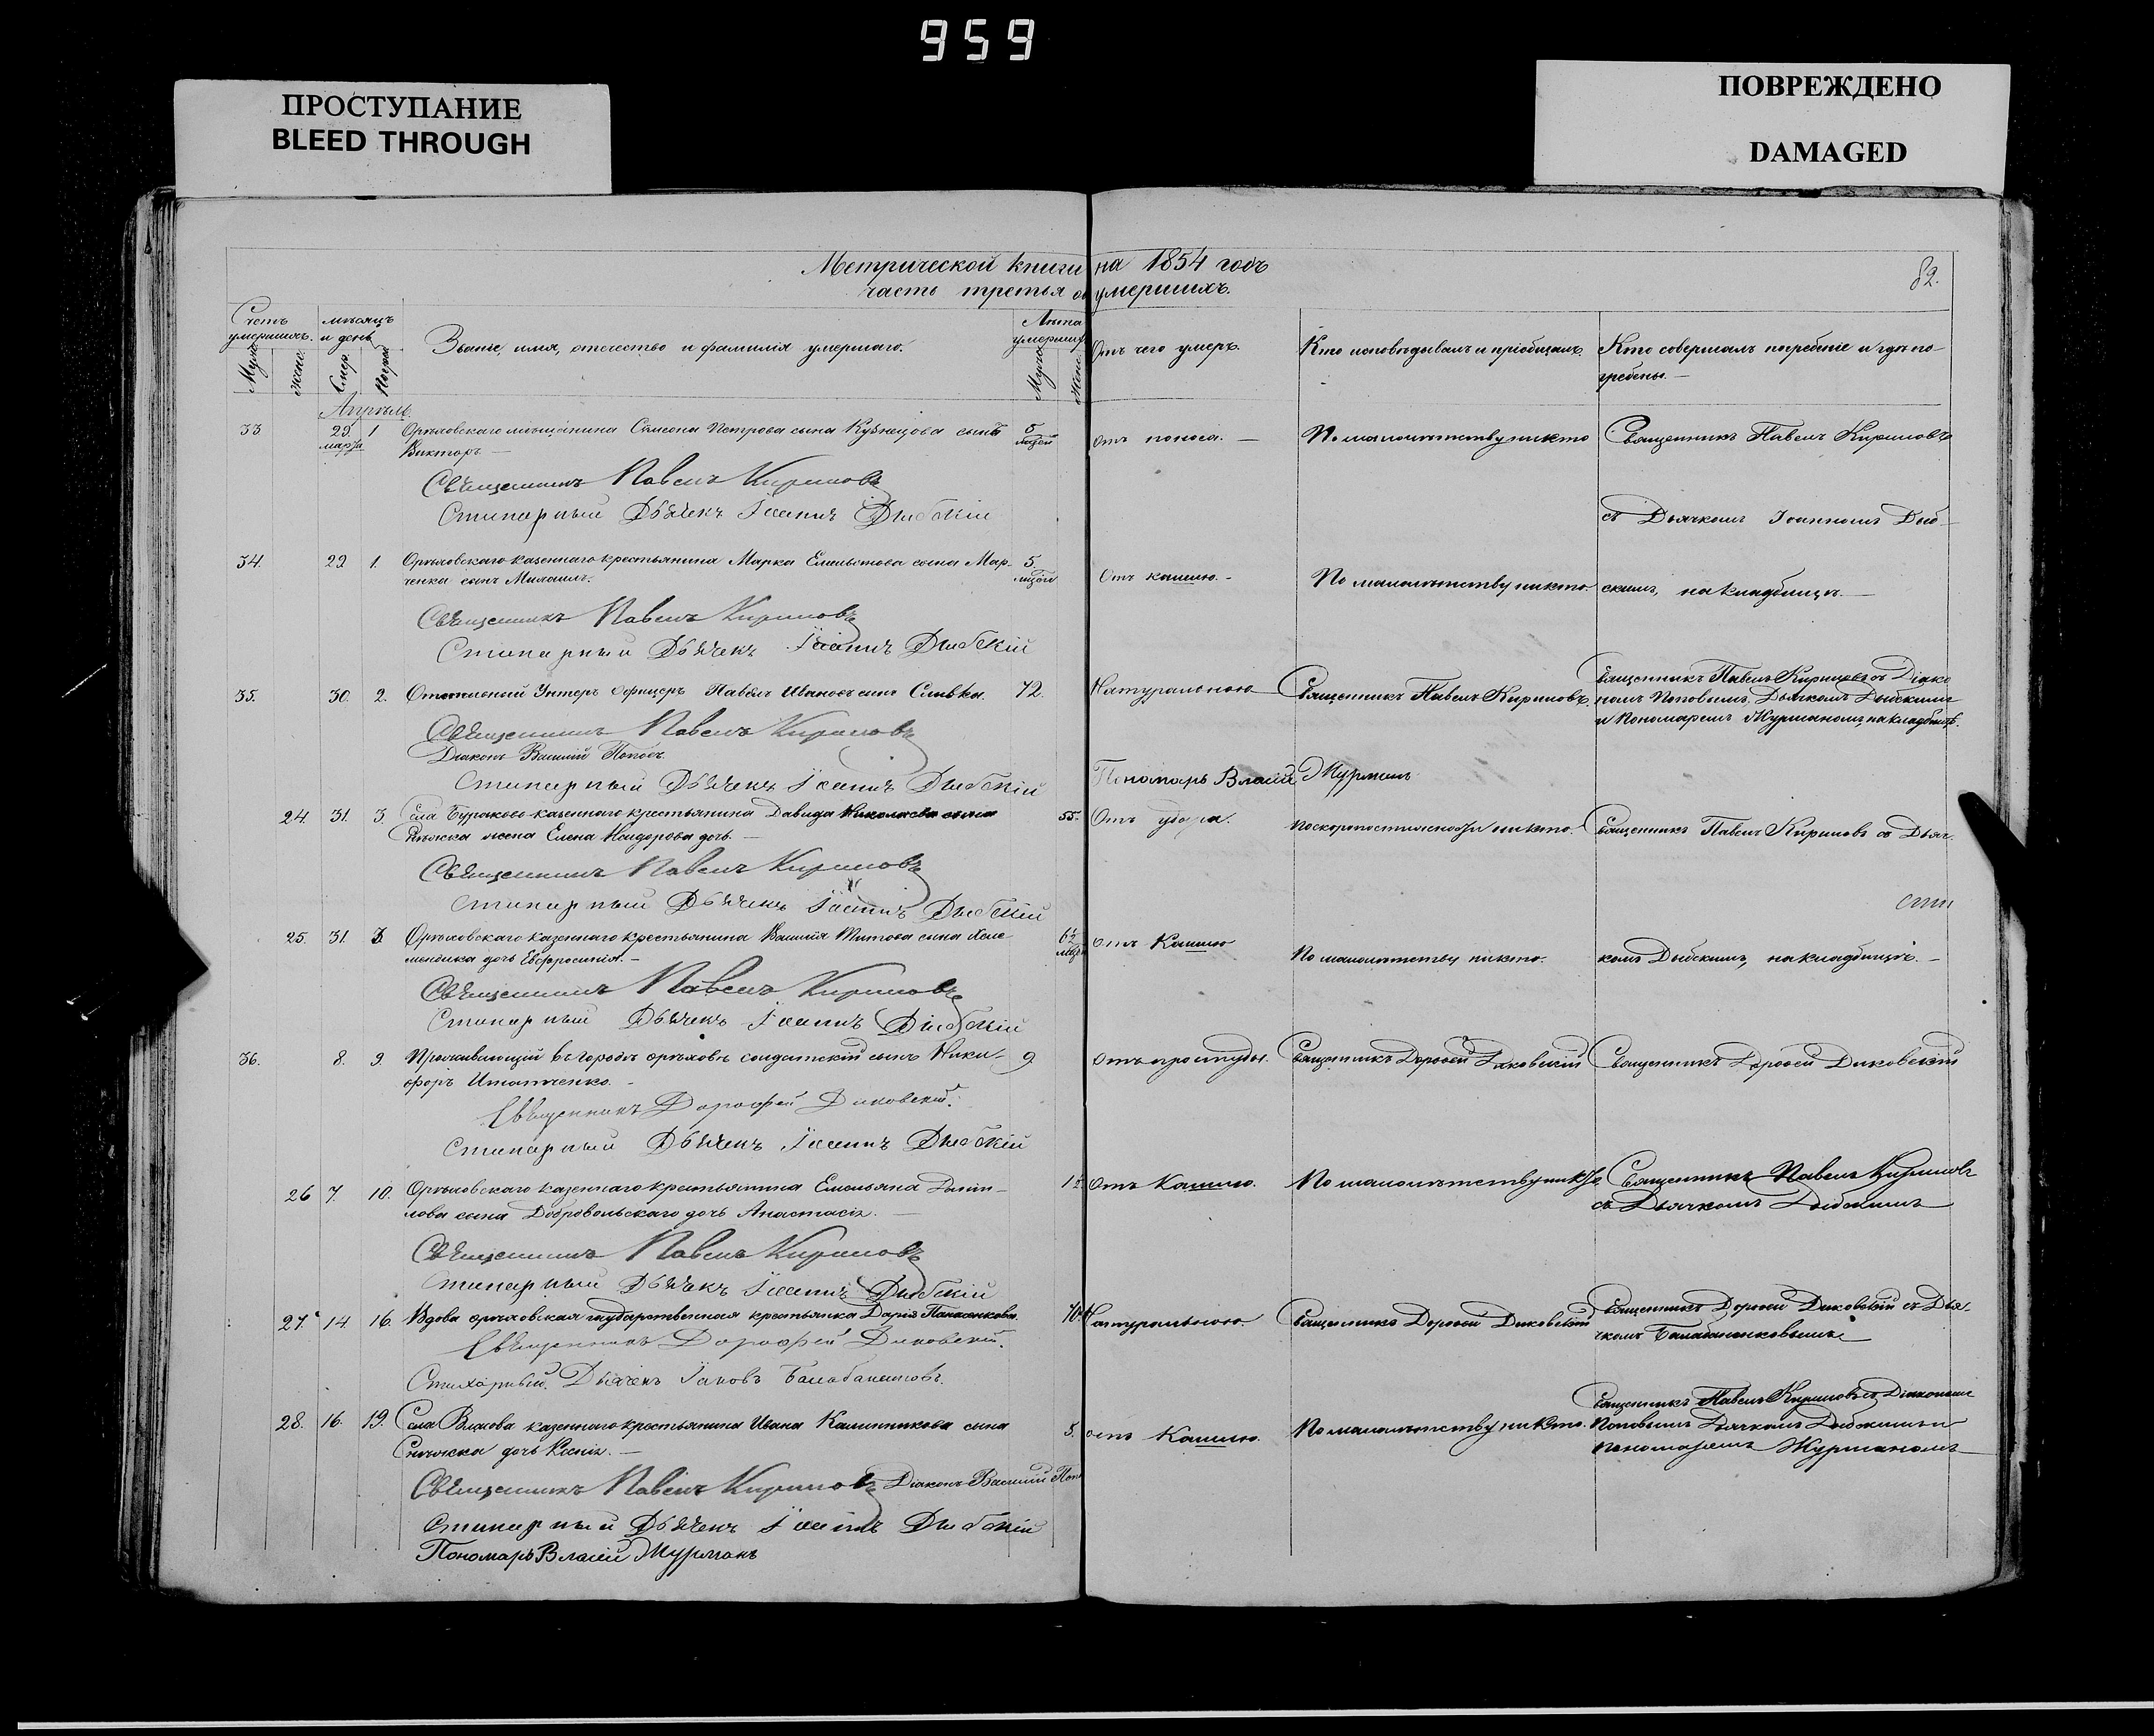 959
ПРОСТУПАНИЕ
BLEED THROUGH
ПОВРЕЖДЕНО
DAMAGED
Метрической книги на 1854 годъ
часть третья о умершихъ.
82.
Счетъ умершихъ.
Муж.
Жен.
мѣсяцъ и день
Смер.
Погреб.
Званіе, имя, отечество и фамилія умершаго.
Лѣта умершихъ
Муж.
Жен.
Отъ чего умеръ.
Кто исповѣдывалъ и пріобщалъ.
Кто совершалъ погребеніе и гдѣ по-
гребены. —
Апрѣль.
33 29 марта 1 Орѣховскаго мѣщанина Симеона Петрова сына Кузнецова сынъ
Викторъ —
отъ поноса. — По малолѣтству никто Священникъ Павелъ Кириловъ
Священникъ Павелъ Кириловъ
Стихарный Дьячекъ Іоаннъ Дибскій
съ Дьячкомъ Іоанномъ Диб-
34. 29 1. Орѣховскаго казеннаго крестьянина Марка Емельянова сына Мар-
ченка сынъ Михаилъ. 5.
Отъ кашлю. - По малолѣтству никто. скимъ, на кладбищѣ. —
Священникъ Павелъ Кириловъ
Стихарный Дьячекъ Іоаннъ Дибскій
35. 30. 2. Отставный Унтеръ Офицеръ Павелъ Ивановъ сынъ Сливка. 72.
Натуральною Священникъ Павелъ Кириловъ. Священникъ Павелъ Кириловъ съ Діако
номъ Поповымъ, Дьячкомъ Дибскимъ
и Пономаремъ Журманомъ, на кладбищѣ.
Священникъ Павелъ Кириловъ
Діаконъ Василій Поповъ
Стихарный Дьячекъ Іоаннъ Дибскій Пономарь Власій Журманъ
24. 31. 3. Села Бураково казеннаго крестьянина Давида Николаева сына
жена Елена дочь. — 55.
Отъ удара. по скоропостижности никто. Священникъ Павелъ Кириловъ съ Дьяч-
Священникъ Павелъ Кириловъ
Стихарный Дьячекъ Іоаннъ Дибскій
25. 31. 3. Орѣховскаго казеннаго крестьянина Василія Титова сына
дочь Евфросинія. —
отъ Кашлю По малолѣтству никто. комъ Дибскимъ, на кладбищѣ. —
Священникъ Павелъ Кириловъ
Стихарный Дьячекъ Іоаннъ Дибскій
36. 8. 9. Проживающій въ городѣ Орѣховѣ солдатскій сынъ Ники-
форъ 9
отъ простуды. Священникъ Дорофей Диковскій Священникъ Дорофей Диковскій
Священникъ Дорофей Диковскій.
Стихарный Дьячекъ Іоаннъ Дибскій
26 7. 10. Орѣховскаго казеннаго крестьянина Емельяна Дани-
лова сына Добровольскаго дочь Анастасія. —
отъ Кашлю. По малолѣтству никто Священникъ Павелъ Кириловъ
съ Дьячкомъ Дибскимъ
Священникъ Павелъ Кириловъ
Стихарный Дьячекъ Іоаннъ Дибскій
27. 14. 16. Вдова орѣховская государственная крестьянка Дарія
Натуральною. Священникъ Дорофей Диковскій Священникъ Дорофей Диковскій съ Дья-
чкомъ
Священникъ Дорофей Диковскій.
Стихарный Дьячекъ Іаковъ
28. 16. 19. Села казеннаго крестьянина Ивана Калинникова сына
дочь Ксенія. — 5.
отъ Кашлю. По малолѣтству никто. Священникъ Павелъ Кириловъ съ Діакономъ
Поповымъ Дьячкомъ Дибскимъ и
пономаремъ Журманомъ
Священникъ Павелъ Кириловъ Діаконъ Василій Поп
Стихарный Дьячекъ Іоаннъ Дибскій
Пономарь Власій Журманъ